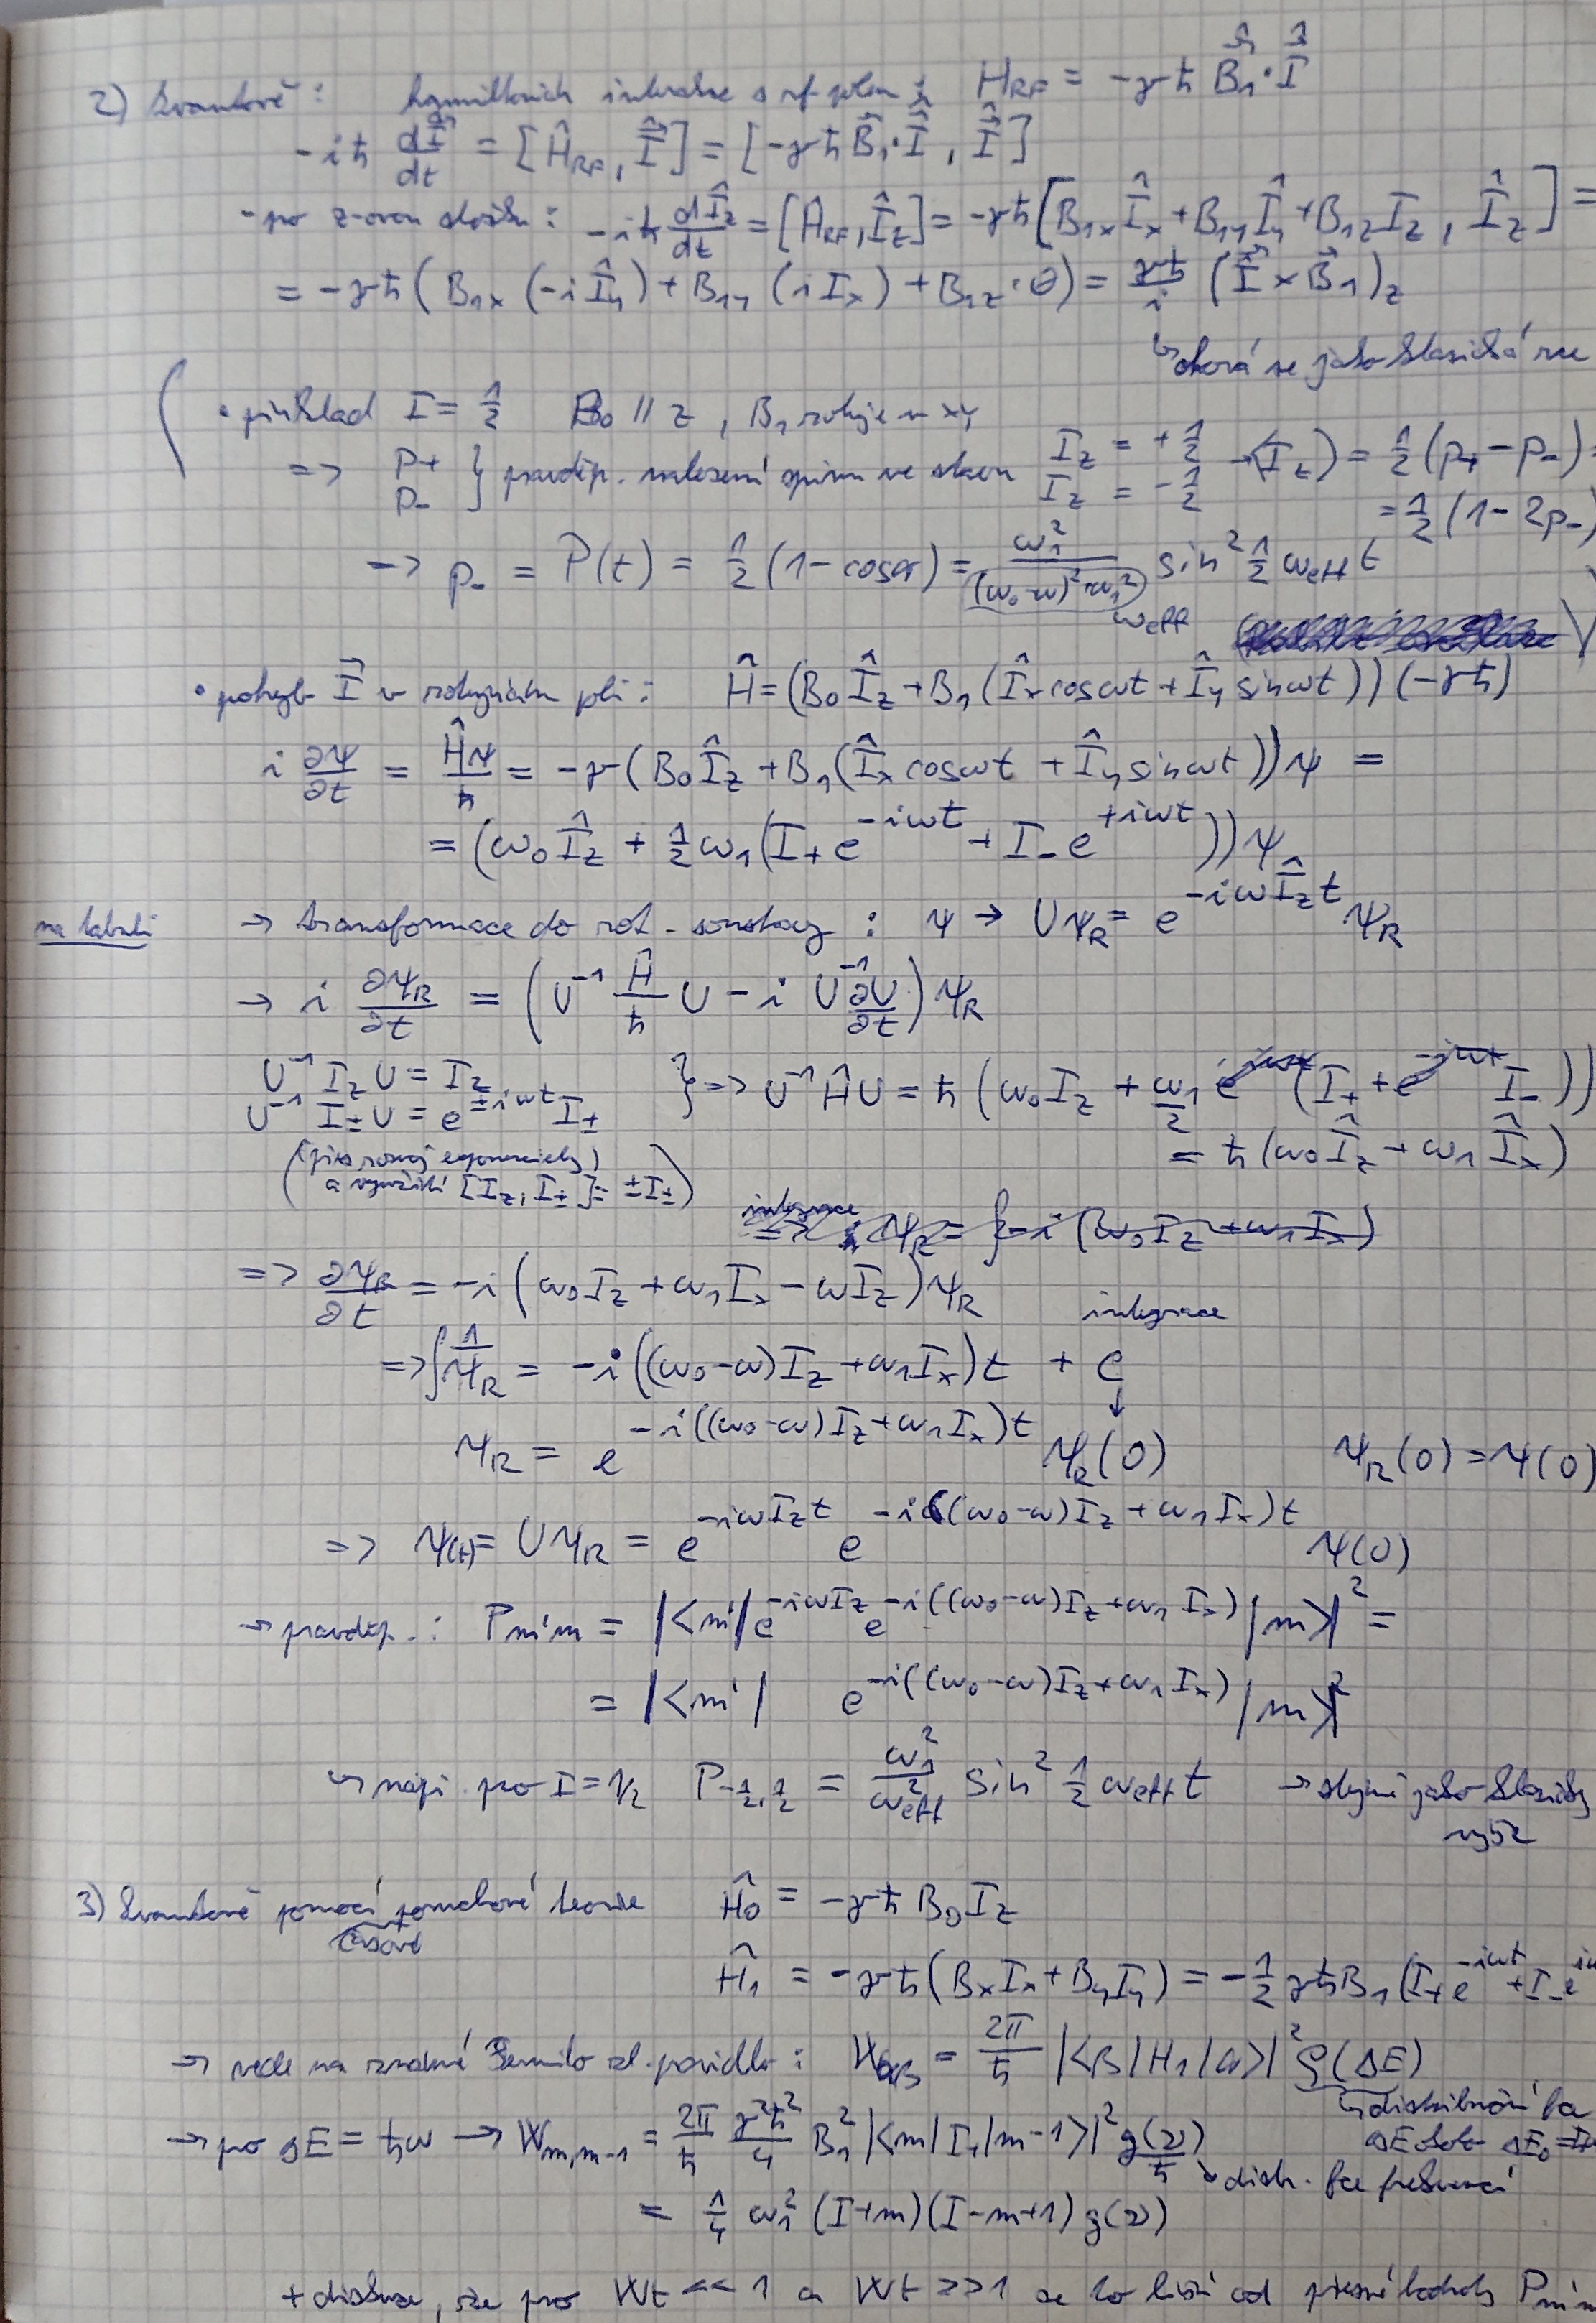 2) kvantově : hamiltonián interakce s rf polem : Ĥ_RF = -γħ B̂₁·Î
-iħ dÎ/dt = [Ĥ_RF, Î] = [-γħ B̂₁·Î, Î]
- po z-ovou složku : -iħ dÎz/dt = [Ĥ_RF, Îz] = -γħ[B₁x Îx + B₁y Îy + B₁z Iz, Îz] =
= -γħ ( B₁x (-i Îy) + B₁y (i Ix) + B₁z · 0) = γħ/i (I × B₁)z
↳ chová se jako klasická rce
• příklad I = 1/2 B₀ // z , B₁ rotuje v xy
=> p+ p- } pravděp. nalezení spinu ve stavu Iz = +1/2 Iz = -1/2 → ⟨Iz⟩ = 1/2 (p+ - p-) =
= 1/2 (1 - 2p-)
→ p- = P(t) = 1/2 (1 - cos α) = ω₁² / ((ω₀-ω)² + ω₁²) sin² 1/2 ω_eff t
ω_eff
• pohyb I v rotujícím poli : Ĥ = (B₀ Îz + B₁ (Îx cos ωt + Îy sin ωt)) (-γħ)
i ∂ψ/∂t = Ĥψ/ħ = -γ (B₀ Îz + B₁ (Îx cos ωt + Îy sin ωt)) ψ =
= (ω₀ Îz + 1/2 ω₁ (I₊ e^{-iωt} + I₋ e^{+iωt})) ψ
na tabuli → transformace do rot. soustavy : ψ → Uψ_R = e^{-iωÎz t} ψ_R
→ i ∂ψ_R/∂t = (U⁻¹ Ĥ/ħ U - i U⁻¹ ∂U/∂t) ψ_R
U⁻¹ Iz U = Iz
U⁻¹ I± U = e^{±iωt} I± } => U⁻¹ĤU = ħ (ω₀ Iz + ω₁/2 (I₊ + I₋))
(přes rozvoj exponenciely) = ħ (ω₀ Îz + ω₁ Îx)
a využití [Iz, I±] = ±I±)
=> ∂ψ_R/∂t = -i (ω₀ Iz + ω₁ Ix - ω Iz) ψ_R
integrace
=> ∫ 1/ψ_R = -i ((ω₀-ω) Iz + ω₁ Ix) t + C
ψ_R = e^{-i((ω₀-ω)Iz + ω₁Ix)t} ψ_R(0) ψ_R(0) = ψ(0)
=> ψ(t) = Uψ_R = e^{-iωIz t} e^{-i((ω₀-ω)Iz + ω₁Ix)t} ψ(0)
→ pravděp. : P_m'm = |<m'| e^{-iωIz} e^{-i((ω₀-ω)Iz + ω₁Ix)} |m>|² =
= |<m'| e^{-i((ω₀-ω)Iz + ω₁Ix)} |m>|²
↳ např. pro I = 1/2 P_{-1/2,1/2} = ω₁²/ω_eff² sin² 1/2 ω_eff t → stejné jako klasicky
výše
3) kvantově pomocí poruchové teorie Ĥ₀ = -γħ B₀ Iz
časové
Ĥ₁ = -γħ (Bx Ix + By Iy) = -1/2 γħB₁ (I₊ e^{-iωt} + I₋ e^{iω
→ vede na známé Fermiho zl. pravidlo : W_αβ = 2π/ħ |<β|H₁|α>|² ρ(ΔE)
↳ distribuční fce
→ pro ΔE = ħω → W_{m,m-1} = 2π/ħ γ²ħ²/4 B₁² |<m|I₊|m-1>|² g(ν)/ħ
ΔE kolo ΔE₀ =
↳ distr. fce frekvencí
= 1/4 ω₁² (I+m)(I-m+1) g(ν)
+ diskuze, že pro Wt << 1 a Wt >> 1 se to liší od přesné hodnoty P_m'm